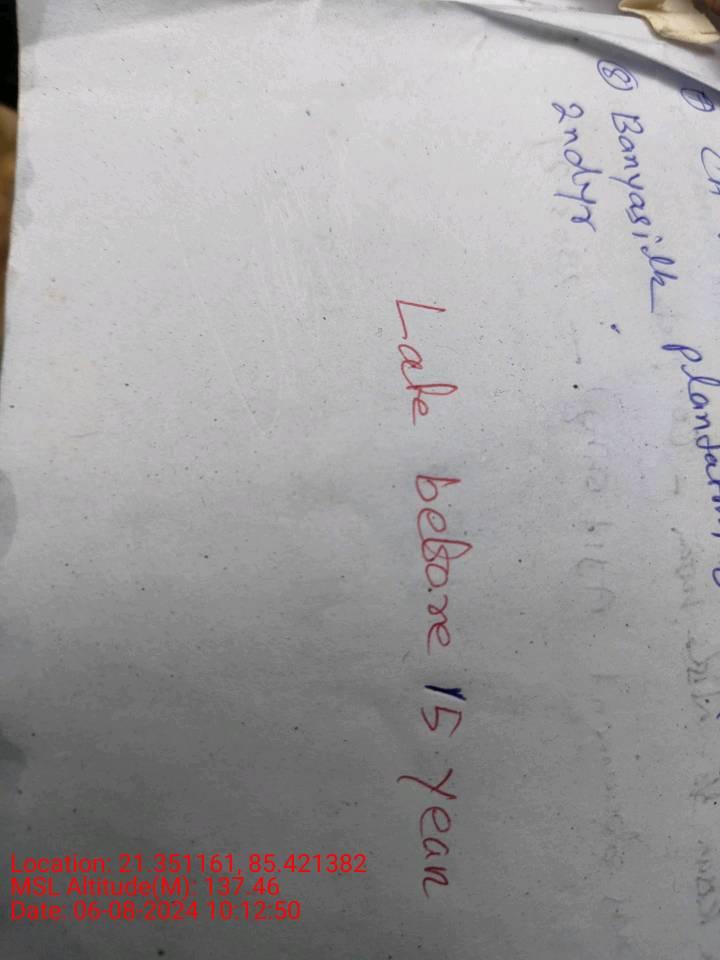 ⑧ Banyasidk plandation
2ndyr
Late before 15 year
Location: 21.351161, 85.421382
MSL Altitude(M): 137.46
Date: 06-08-2024 10:12:50